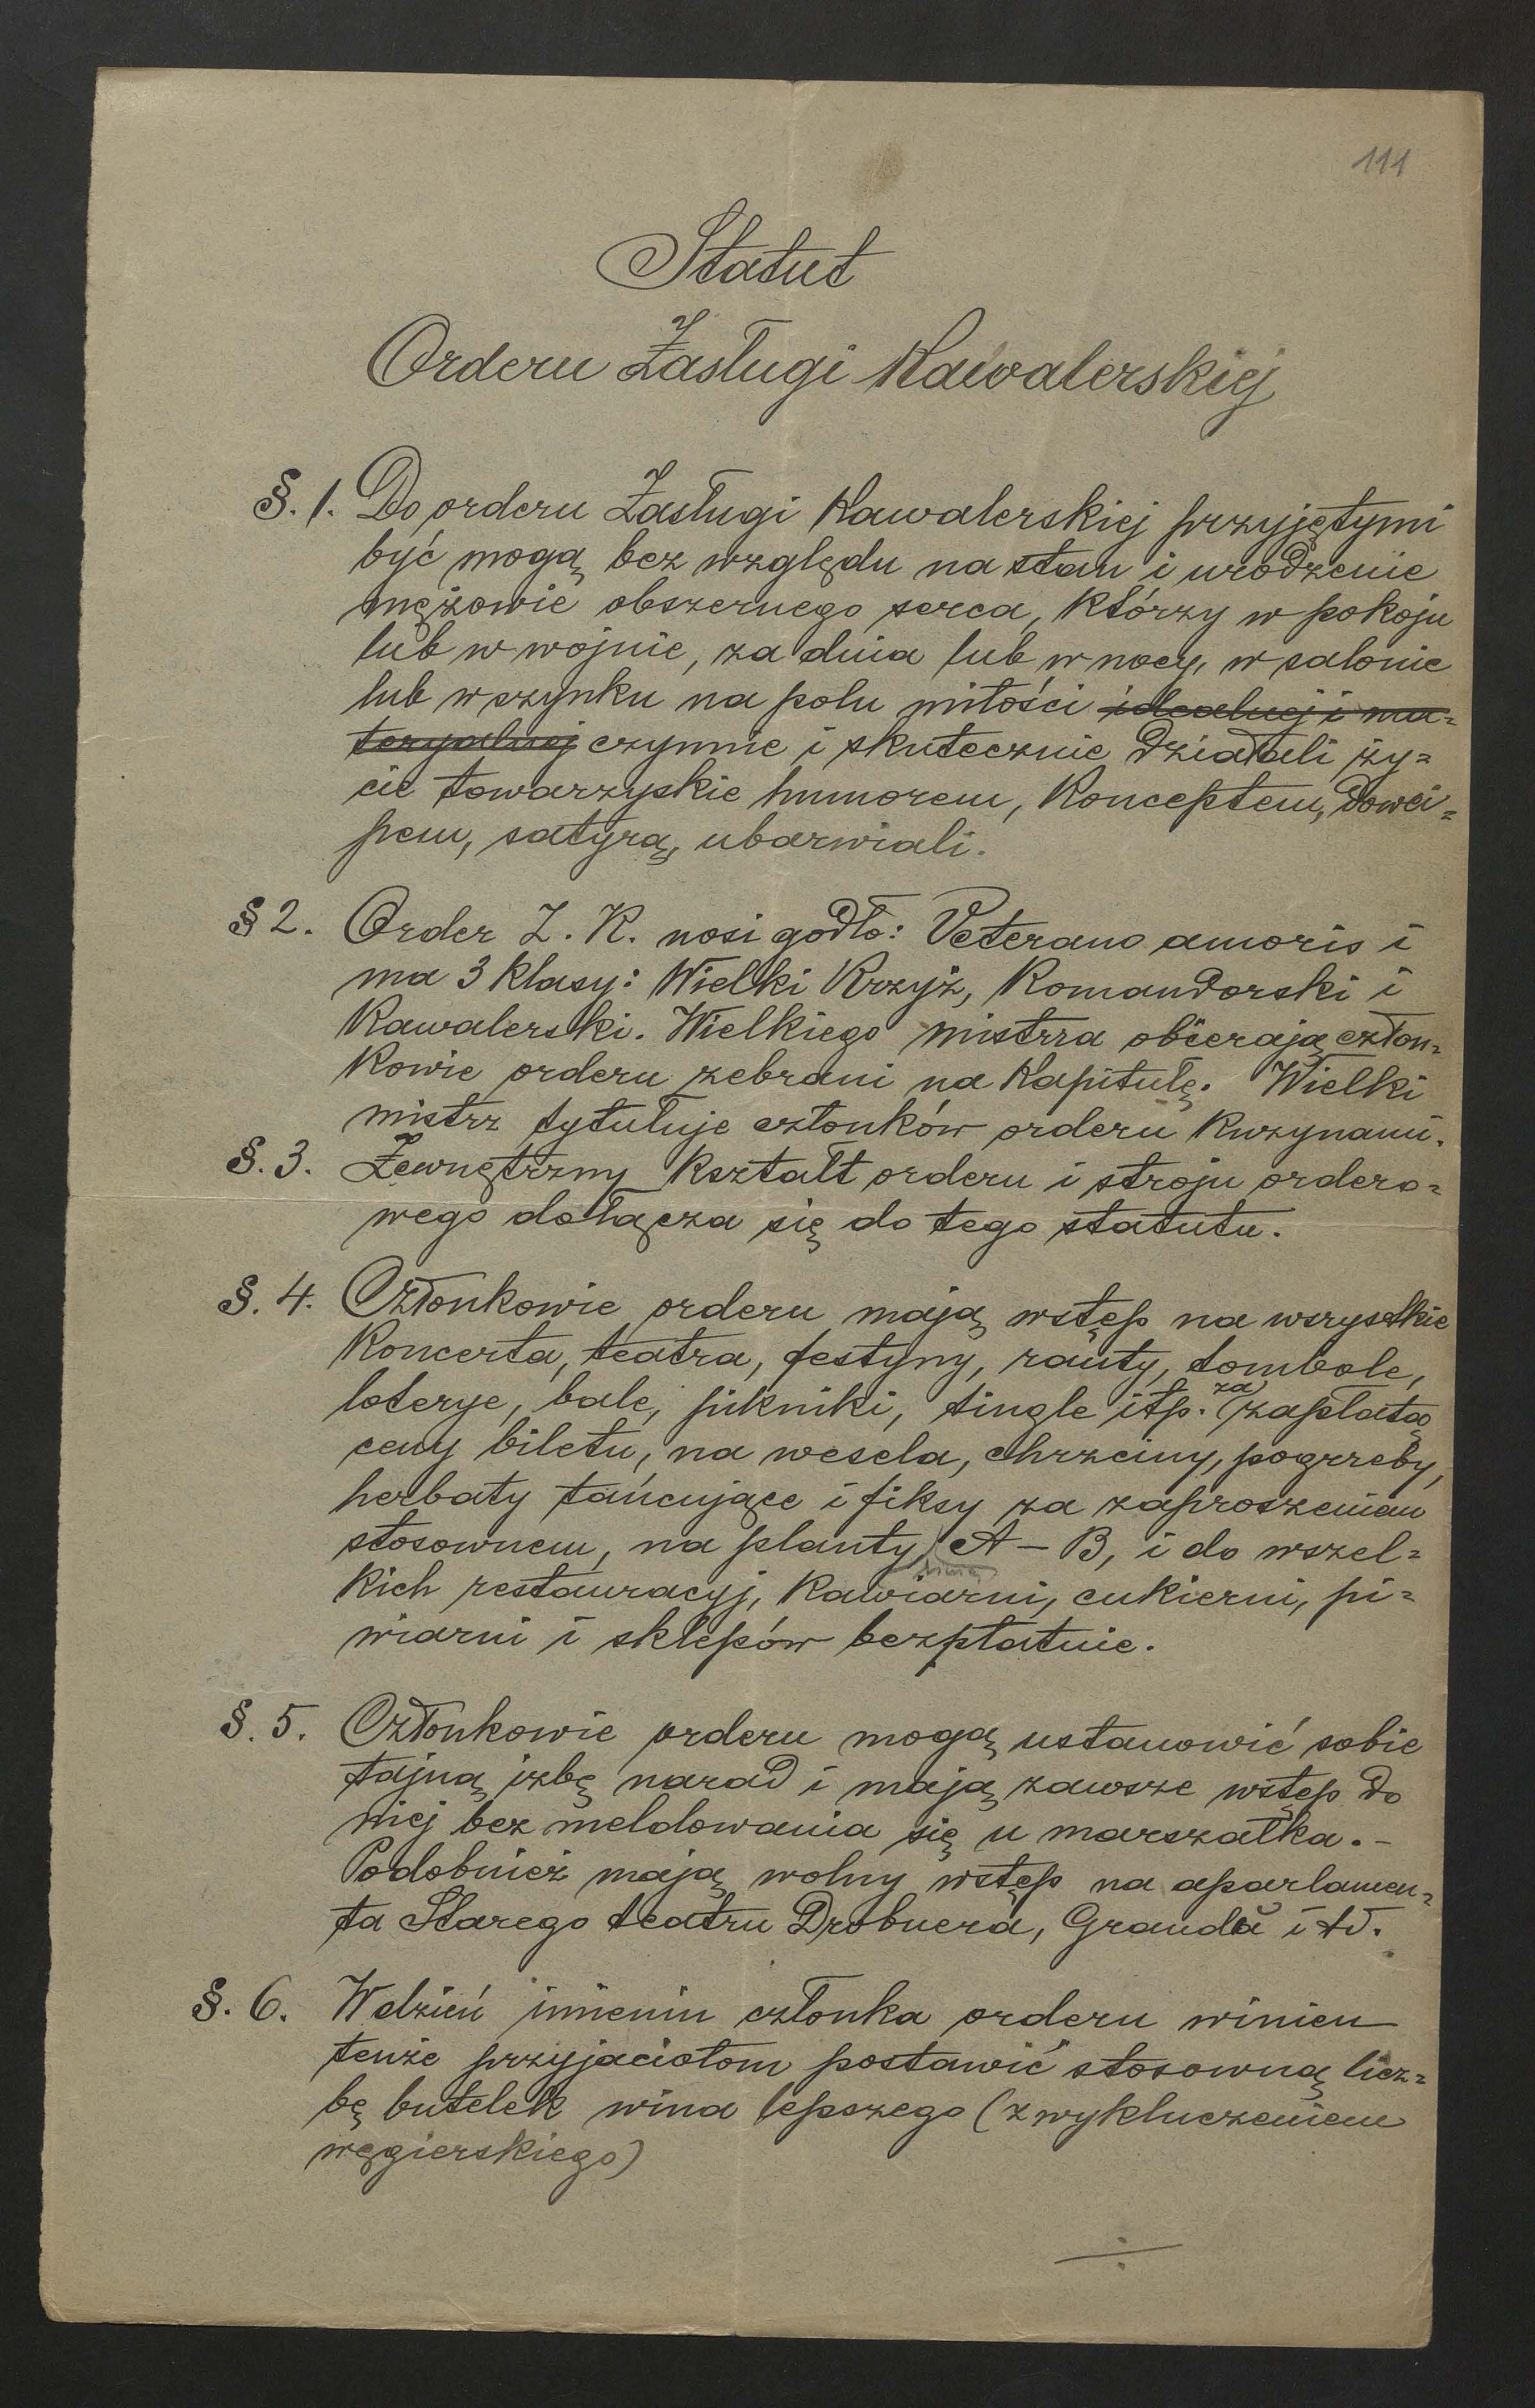 111
Statut
Orderu Zasługi Kawalerskiej
§. 1. Do orderu Zasługi Kawalerskiej przyjętymi
być mogą bez względu na stan i urodzenie
mężowie obszernego serca, którzy w pokoju
lub w wojnie, za dnia lub w nocy, w salonie
lub w szynku na polu miłości idealnej i ma=
teryalnej czynnie i skutecznie działali ży=
cie towarzyskie humorem, konceptem, dowci=
pem, satyrą, ubarwiali.
§ 2. Order Z. K. nosi godło: Veterano amoris i
ma 3 klasy: Wielki Krzyż, Komandorski i
Kawalerski. Wielkiego mistrza obierają człon=
kowie orderu zebrani na kapitułę. Wielki
mistrz tytułuje członków orderu kuzynami.
§. 3. Zewnętrzny kształt orderu i stroju ordero=
wego dołącza się do tego statutu.
§. 4. Członkowie orderu mają wstęp na wszystkie
koncerta, teatra, festyny, rauty, tombole,
loterye, bale, pikniki, tingle itp. za zapłatą
ceny biletu, na wesela, chrzciny, pogrzeby,
herbaty tańcujące i fiksy za zaproszeniem
stosownem, na planty, linię A – B, i do wszel=
kich restauracyj, kawiarni, cukierni, pi=
wiarni i sklepów bezpłatnie.
§. 5. Członkowie orderu mogą ustanowić sobie
tajną izbę narad i mają zawsze wstęp do
niej bez meldowania się u marszałka. –
Podobnież mają wolny wstęp na aparlamen=
ta Starego teatru Drobnera, Granda itd.
§. 6. W dzień imienin członka orderu winien
tenże przyjaciołom postawić stosowną licz=
bę butelek wina lepszego (z wykluczeniem
węgierskiego)